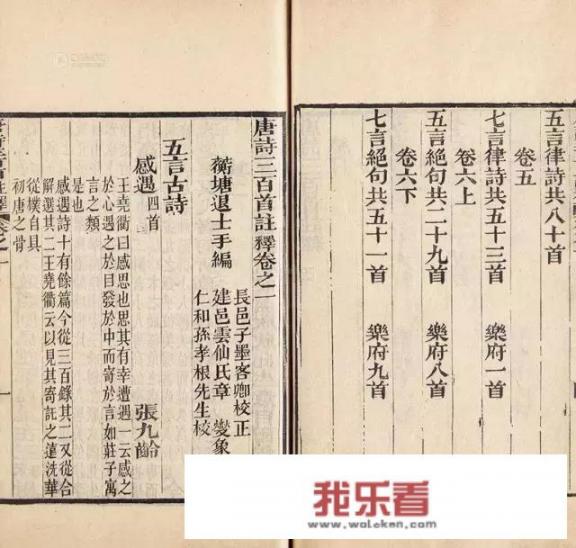 五言律詩共八十首
卷五
七言律詩共五十三首 樂府一首
卷六上
五言絕句共二十九首 樂府八首
卷六下
七言絕句共五十一首 樂府九首
唐詩三百首註釋卷之一
蘅塘退士手編
長邑子墨客卿校正
建邑雲仙氏章燮象
仁和孫孝根先生校
五言古詩
感遇四首 張九齡
王堯衢曰感思也思其有幸遭遇一云感之
於心遇之於目發於中而寄於言如莊子寓
言之類
是也
感遇詩十有餘篇今從三百錄其二又從合
解選其二王堯衢云以見其寄託之遠洗華
從樸自具
初唐之骨
我乐看
www.woleken.com